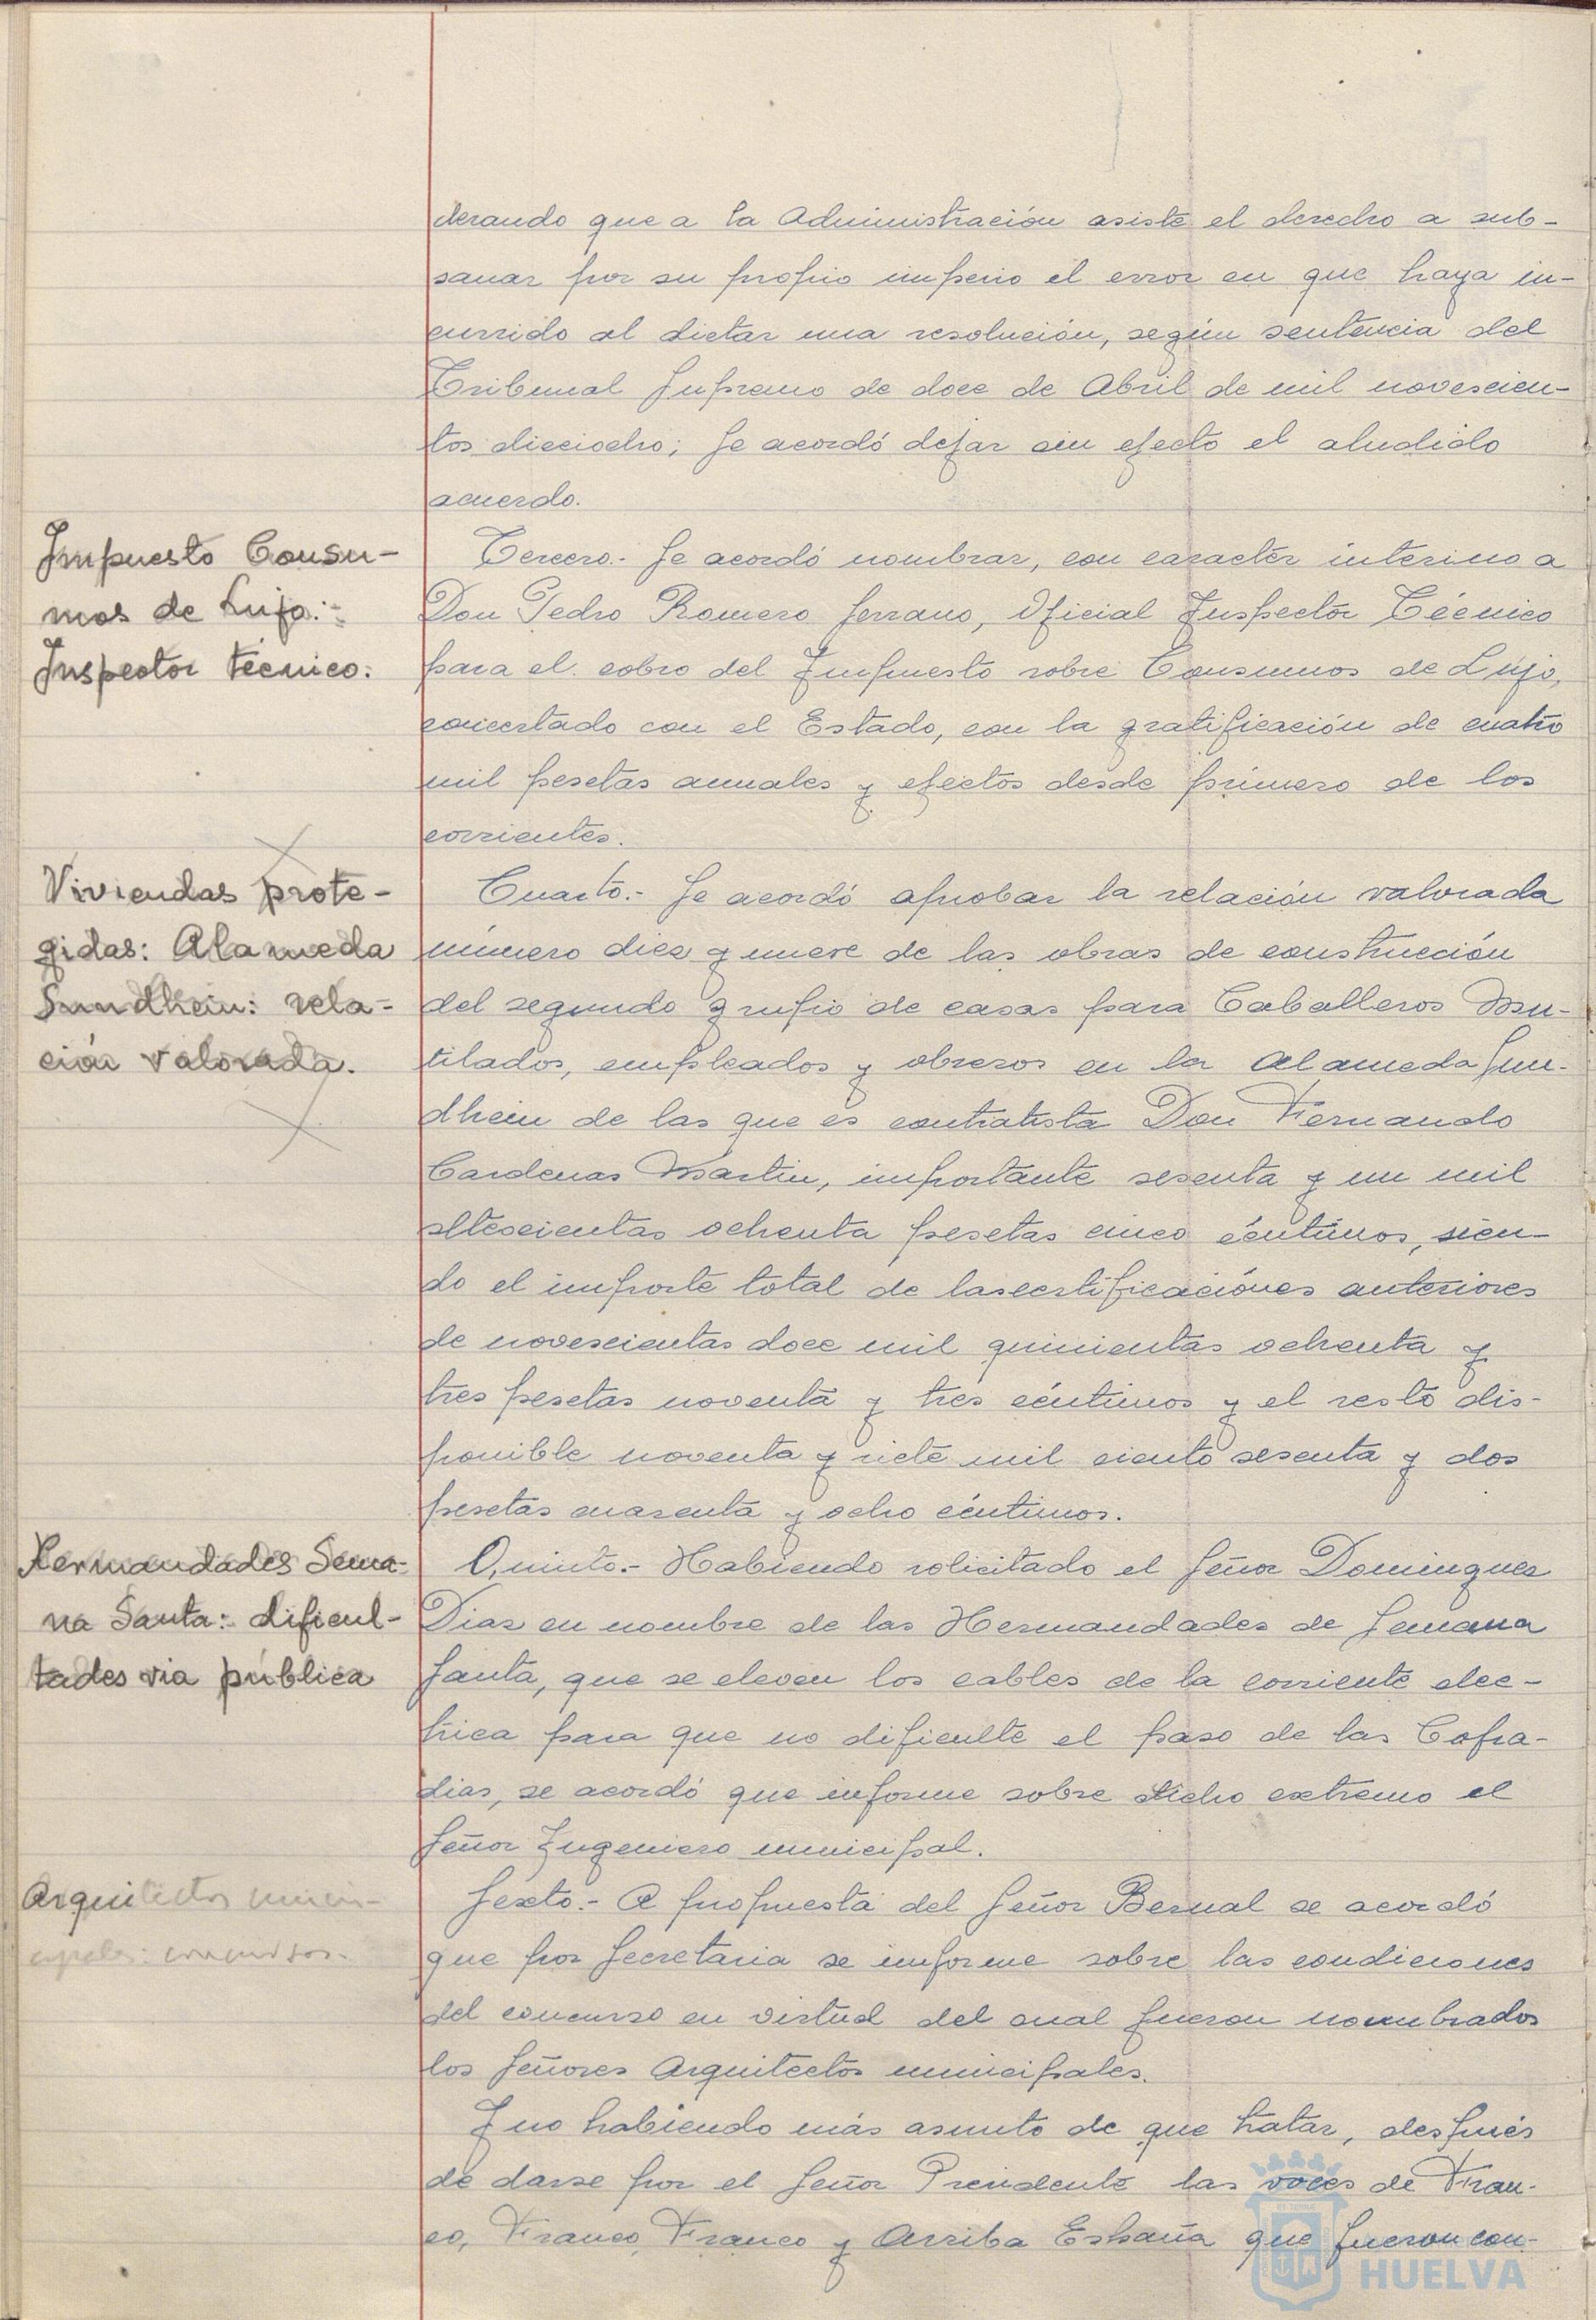 derando que a la Administración asiste el derecho a sub-
sanar por su propio imperio el error en que haya in-
currido al dictar una resolución, según sentencia del
Tribunal Supremo de doce de Abril de mil novescien-
tos dieciocho; Se acordó dejar sin efecto el aludido
acuerdo.
Impuesto Consu-
mos de Lujo:-
Inspector técnico:
Tercero.- Se acordó nombrar, con caracter interino a
Don Pedro Romero Serrano, Oficial Inspector Técnico
para el cobro del Impuesto sobre Consumos de Lujo,
concertado con el Estado, con la gratificación de cuatro
mil pesetas anuales y efectos desde primero de los
corrientes.
Viviendas prote-
gidas: Alameda
Sundhein: rela-
ción valorada.
Cuarto.- Se acordó aprobar la relación valorada
número diez y nueve de las obras de construcción
del segundo grupo de casas para Caballeros Mu-
tilados, empleados y obreros en la Alameda Sun-
dhein de las que es contratista Don Fernando
Cardenas Martin, importante sesenta y un mil
setescientas ochenta pesetas cinco céntimos, sien-
do el importe total de las certificaciónes anteriores
de novescientas doce mil quinientas ochenta y
tres pesetas noventa y tres céntimos y el resto dis-
ponible noventa y siete mil ciento sesenta y dos
pesetas cuarenta y ocho céntimos.
Hermandades Sema-
na Santa: dificul-
tades via pública
Quinto.- Habiendo solicitado el Señor Dominguez
Diaz en nombre de las Hermandades de Semana
Santa, que se eleven los cables de la corriente elec-
trica para que no dificulte el paso de las Cofra-
dias, se acordó que informe sobre dicho extremo el
Señor Ingeniero municipal.
Arquitectos muni-
cipales: concursos.-
Sexto.- A propuesta del Señor Bernal se acordó
que por Secretaria se informe sobre las condiciones
del concurso en virtud del cual fueron nombrados
los Señores Arquitectos municipales.
Y no habiendo más asunto de que tratar, después
de darse por el Señor Presidente las voces de Fran-
co, Franco, Franco y Arriba España que fueron con-
HUELVA